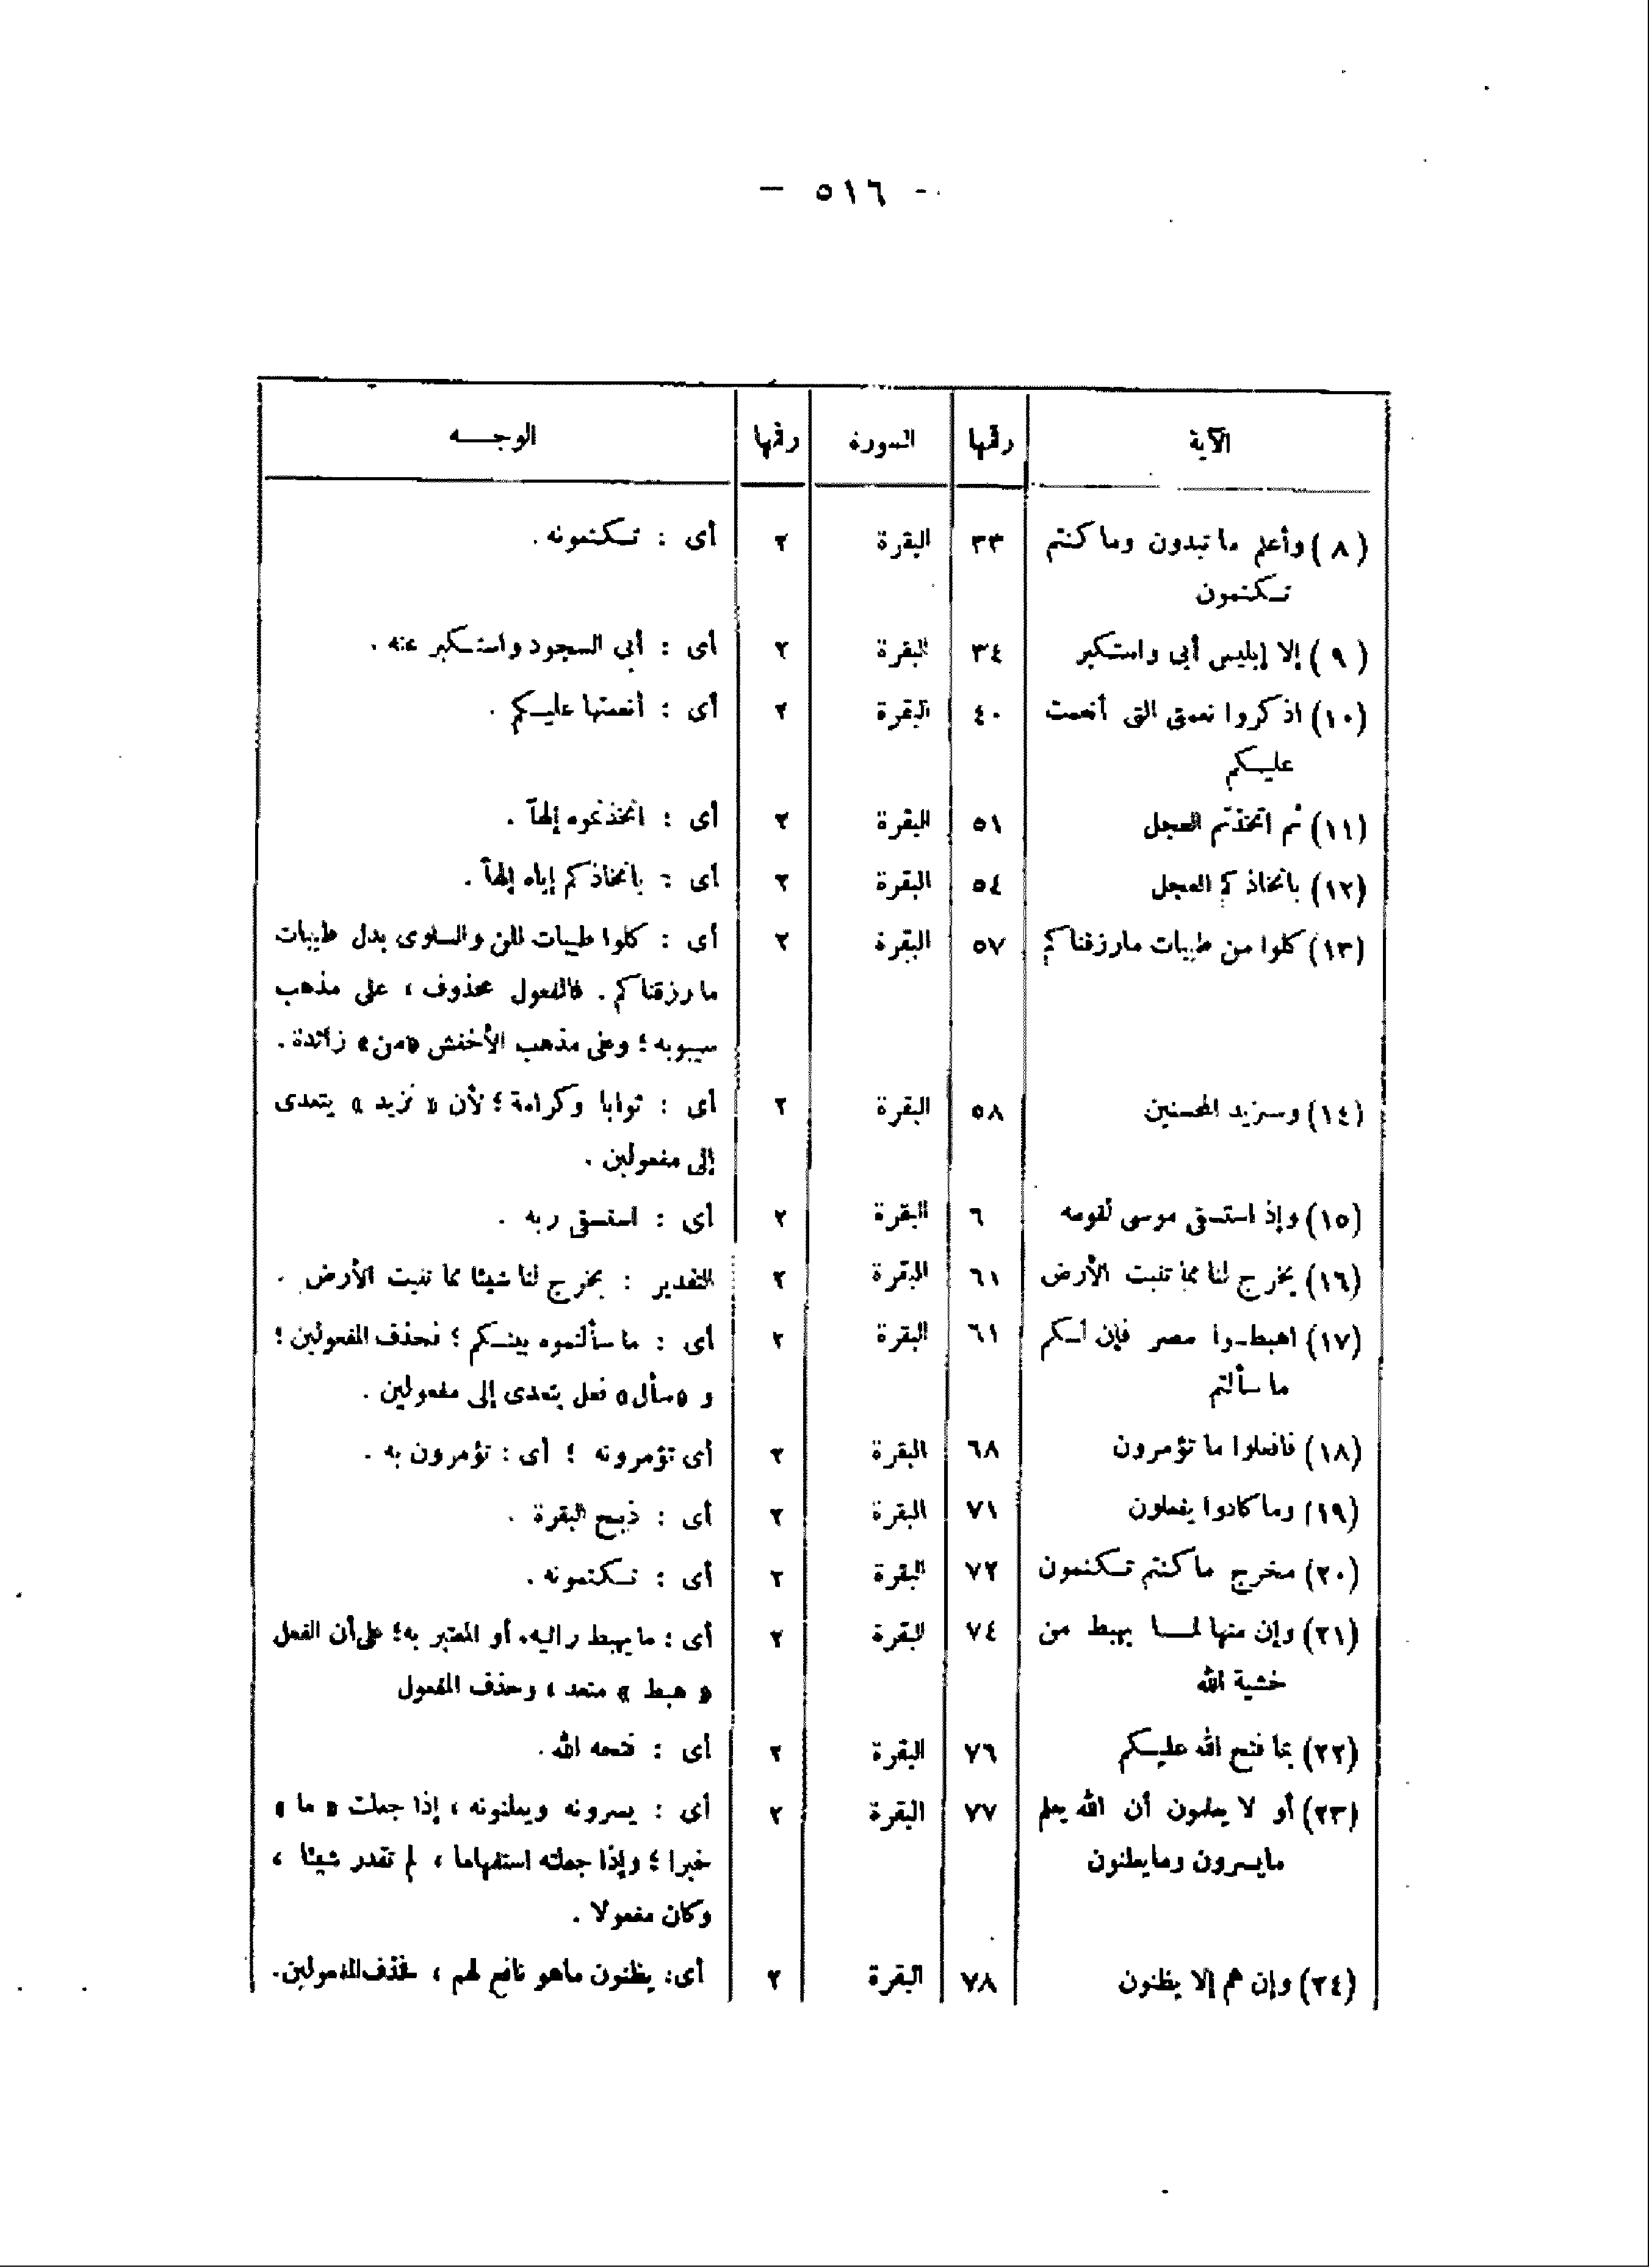 — ٥١٦ —
الآية رقمها السورة رقمها الوجـــه
(٨) وأعلم ما تبدون وما كنتم ٣٣ البقرة ٢ أى : تـكتمونه .
تـكتمون
(٩) إلا إبليس أبى واستكبر ٣٤ البقرة ٢ أى : أبى السجود واستـكبر عنه .
(١٠) اذكروا نعمتى التى أنعمت ٤٠ البقرة ٢ أى : أنعمتها عليـكم .
عليـكم
(١١) ثم اتخذتم العجل ٥١ البقرة ٢ أى : اتخذتموه إلهاً .
(١٢) باتخاذكم العجل ٥٤ البقرة ٢ أى : باتخاذكم إياه إلهاً .
(١٣) كلوا من طيبات مارزقناكم ٥٧ البقرة ٢ أى : كلوا طيبات المن والسلوى بدل طيبات
ما رزقناكم . فالمفعول محذوف ، على مذهب
سيبويه ؛ وعلى مذهب الأخفش «من» زائدة .
(١٤) وسنزيد المحسنين ٥٨ البقرة ٢ أى : ثوابا وكرامة ؛ لأن « نزيد » يتعدى
إلى مفعولين .
(١٥) وإذ استـسقى موسى لقومه ٦ البقرة ٢ أى : استـسقى ربه .
(١٦) يخرج لنا مما تنبت الأرض ٦١ البقرة ٢ التقدير : يخرج لنا شيئا مما تنبت الأرض .
(١٧) اهبطـوا مصر فإن لـكم ٦١ البقرة ٢ أى : ما سألتموه بينـكم ؛ فحذف المفعولين ؛
ما سألتم و «سأل» فعل يتعدى إلى مفعولين .
(١٨) فافعلوا ما تؤمرون ٦٨ البقرة ٢ أى تؤمرونه ؛ أى : تؤمرون به .
(١٩) وما كادوا يفعلون ٧١ البقرة ٢ أى : ذبح البقرة .
(٢٠) مخرج ما كنتم تـكتمون ٧٢ البقرة ٢ أى : تـكتمونه .
(٢١) وإن منها لمـا يهبط من ٧٤ البقرة ٢ أى : ما يهبط رائيه، أو المعتبر به؛ على أن الفعل
خشية الله « هبط » متعد ، وحذف المفعول
(٢٢) بما فتح الله عليـكم ٧٦ البقرة ٢ أى : فتحه الله .
(٢٣) أو لا يعلمون أن الله يعلم ٧٧ البقرة ٢ أى : يسرونه ويعلنونه ، إذا جعلت « ما »
مايسرون ومايعلنون خبرا ؛ وإذا جعلته استفهاما ، لم تقدر شيئا ،
وكان مفعولا .
(٢٤) وإن هم إلا يظنون ٧٨ البقرة ٢ أى: يظنون ماهو نافع لهم ، فحذف المفعولين.